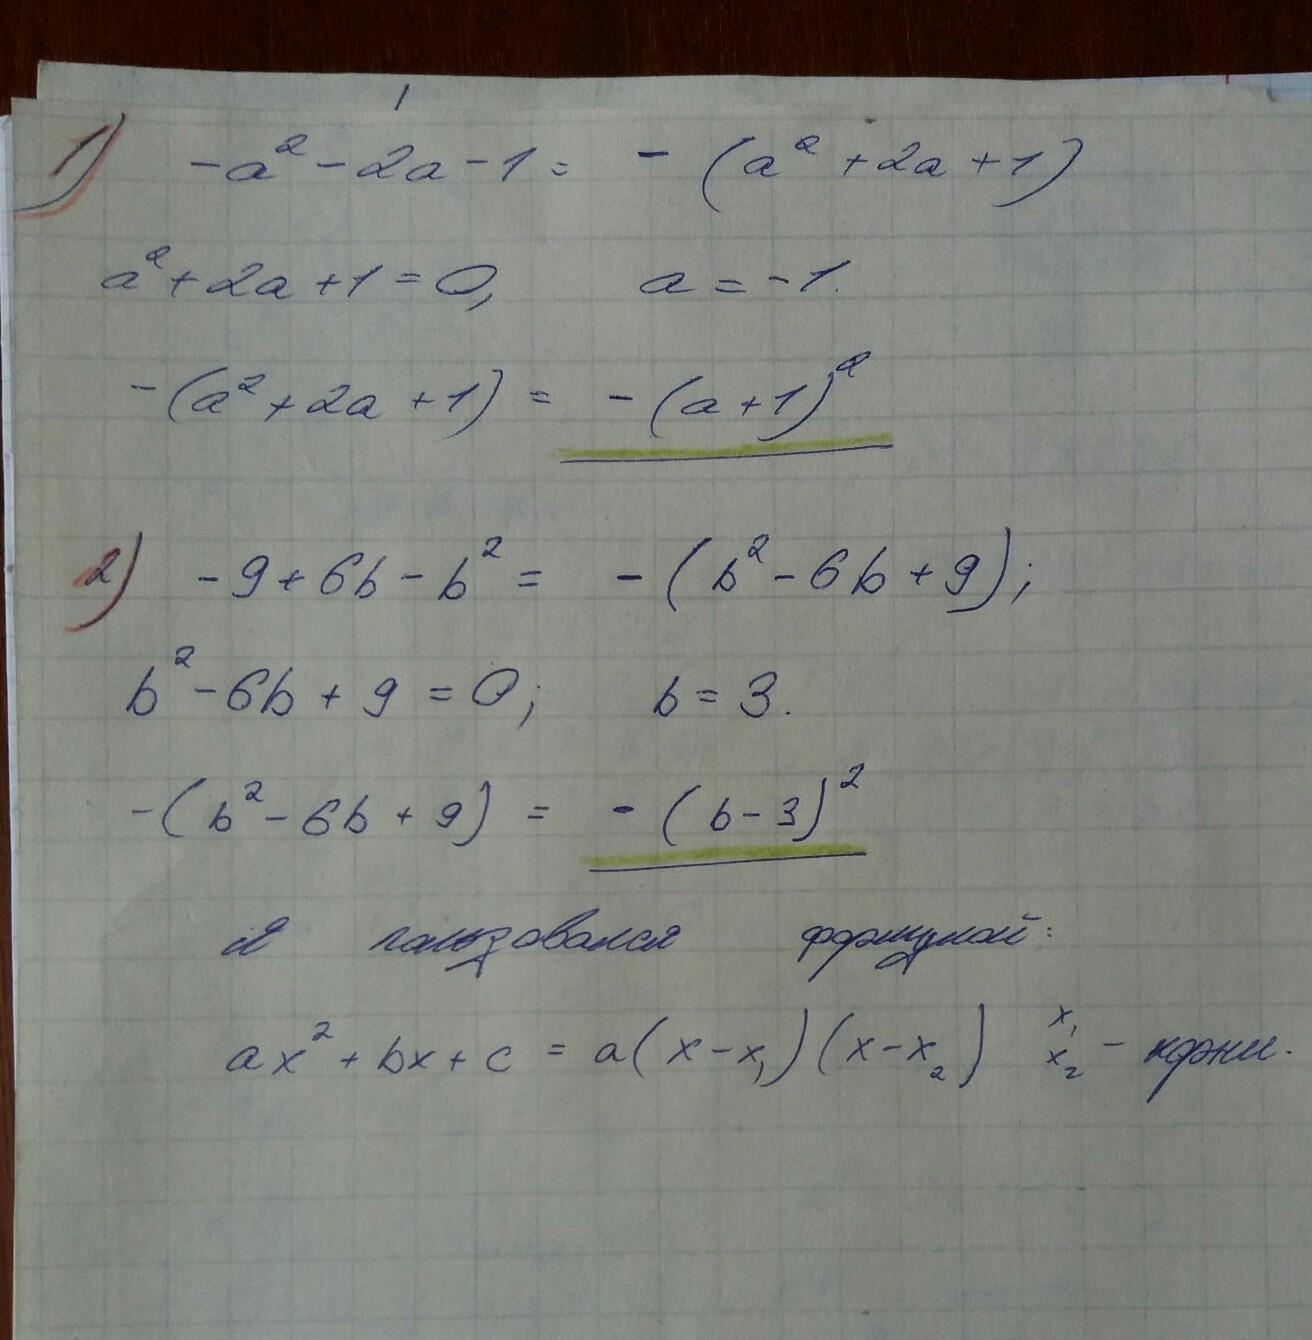 1) -a² - 2a - 1 = - (a² + 2a + 1)
a² + 2a + 1 = 0, a = -1.
-(a² + 2a + 1) = - (a + 1)²
2) - 9 + 6b - b² = - (b² - 6b + 9);
b² - 6b + 9 = 0; b = 3.
-(b² - 6b + 9) = - (b - 3)²
Я пользовался формулой:
ax² + bx + c = a(x - x₁)(x - x₂) x₁ x₂ - корни.